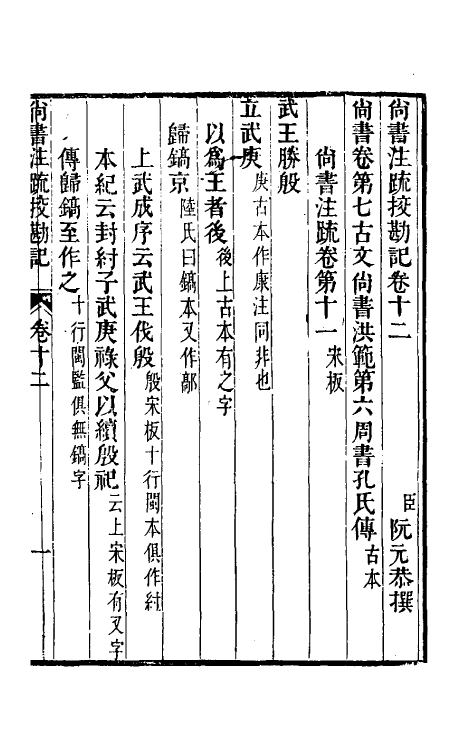 尚書注疏挍勘記卷十二　臣阮元恭撰
尚書卷第七古文尚書洪範第六周書孔氏傳古本
尚書注疏卷第十一宋板
武王勝殷
立武庚庚古本作康注同非也
以爲王者後後上古本有之字
歸鎬京陸氏曰鎬本又作鄗
上武成序云武王伐殷殷宋板十行閩本俱作紂
本紀云封紂子武庚祿父以續殷祀云上宋板有又字
傳歸鎬至作之十行閩監俱無鎬字
尚書注疏挍勘記　卷十二　一